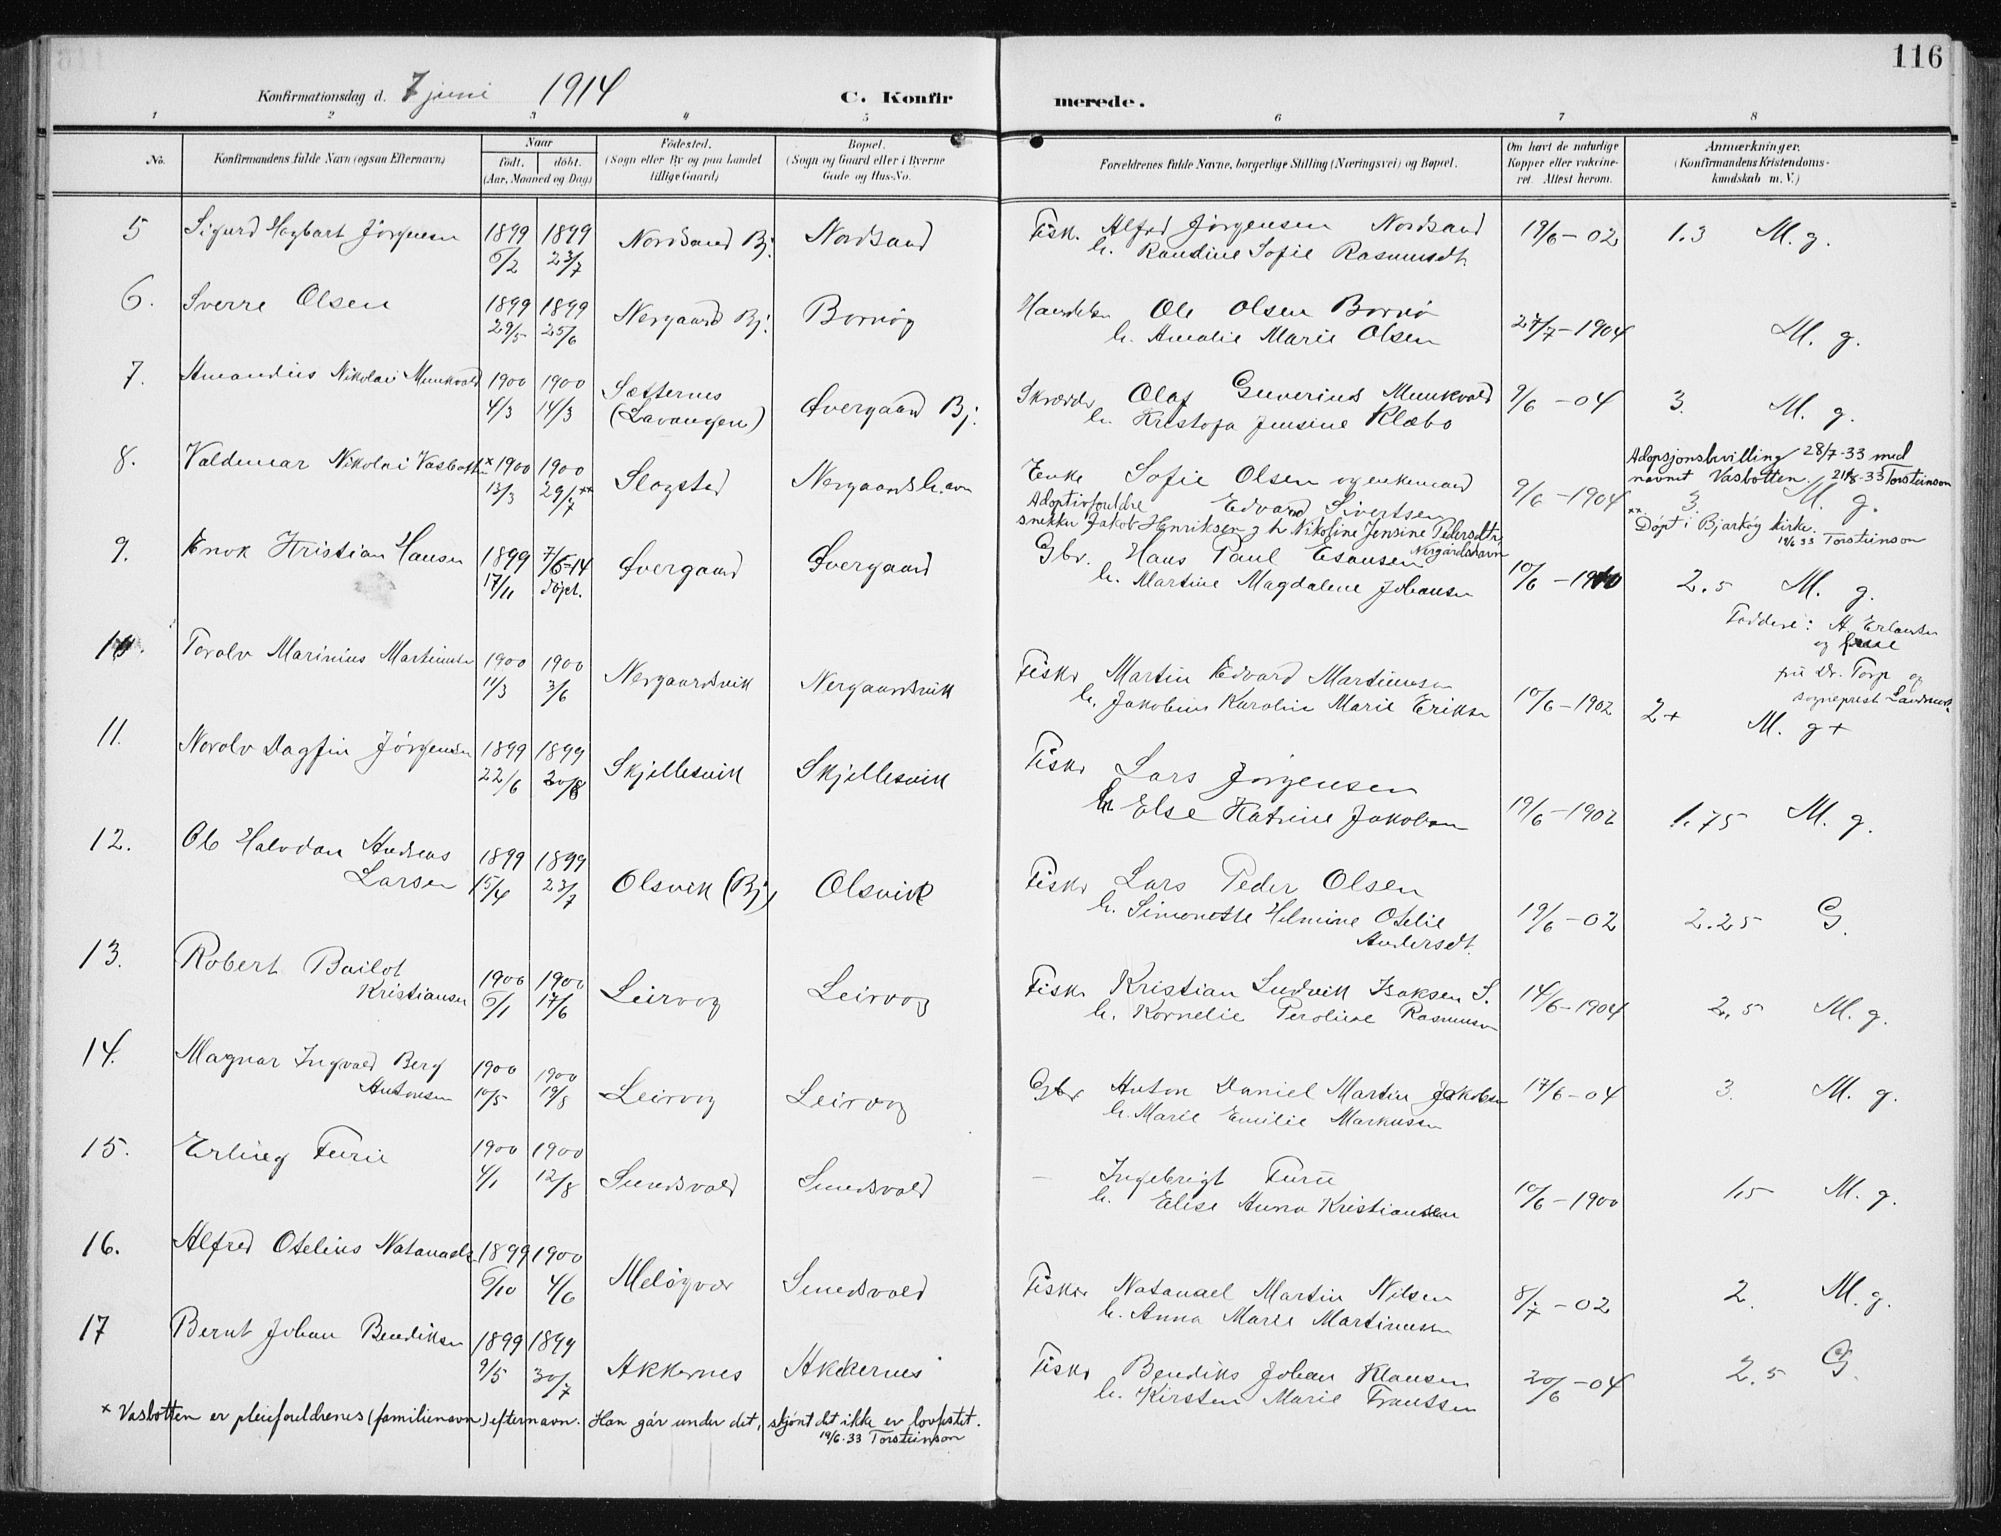 116
Konfirmationsdag d. 7 juni 1914 C. Konfirmerede.
1 2 3 4 5 6 7 8
No. Konfirmandens fulde Navn (ogsaa Efternavn) Naar født. døbt. (Aar, Maaned og Dag) Fødested. (Sogn eller By og paa Landet tillige Gaard) Bopæl. (Sogn og Gaard eller i Byerne Gade og Hus-No. Forældrenes fulde Navne, borgerlige Stilling (Næringsvei) og Bopæl. Om havt de naturlige Kopper eller vaccineret. Attest herom. Anmærkninger. (Konfirmandens Kristendomskundskab m. V.)
5 Sigurd Hagbart Jørgensen 1899 6/2 1899 23/7 Nordsand Bj. Nordsand Fisk. Alfred Jørgensen Nordsand 19/6-02 1.3 M. g.
h. Randine Sofie Rasmusdt.
6. Sverre Olsen 1899 29/5 1899 25/6 Nergaard Bj. Bornøy Handelsm Ole Olsen Bornø 27/7-1904 M. g.
h. Amalie Marie Olsen
7. Amandus Nikolai Munkvold 1900 4/3 1900 14/3 Sætternes (Lavangen) Øvergaard Bj. Skrædder Olaf Severius Munkvold 9/6-04 3. M. g.
h. Kristofa Jensine Klæbo
8. Valdemar Nikolai Vasbotten x 1900 13/3 1900 29/7 xx Slagstad Nergaardsh.avn Enke Sofie Olsen og enkemand Edvard Sivertsen 9/6-1904 3. M. g.
Adoptivforeldre snekker Jakob Henriksen og h. Nikoline Jensine Pedersdtr, Nergårdshavn
Adopsjonsbevilling 28/7-33 med navnet Vasbotten. 21/8-33 Torsteinson
xx Døpt i Bjarkøy kirke. 19/6 33 Torsteinson
9. Enok Kristian Hansen 1899 17/11 7/6-14 døpt. Øvergaard Øvergaard Gbr. Hans Paul Esausen 10/6-1910 2.5 M. g.
h. Martine Magdalene Johansen
Faddere: A Erlandsen og frue
fru Dr. Torp og sogneprest Landmark
10. Toralv Marinius Martinsen 1900 11/3 1900 3/6 Nergaardsvik Nergaardsvik Fisker Martin Edvard Martinussen 10/6-1902 2+ M. g+
h. Jakobine Karoline Marie Eriksen
11. Norolv Dagfin Jørgensen 1899 22/6 1899 20/8 Skjellesvik Skjellesvik Fisker Lars Jørgensen 19/6-1902 1.75 M. g.
h. Else Katrine Jakobsen
12. Ole Halvdan Andreas Larsen 1899 15/4 1899 23/7 Olsvik (Bj) Olsvik Fisker Lars Peder Olsen 19/6-02 2.25 G.
h. Simonette Helmine Otelie Andersdt.
13. Robert Bailot Kristiansen 1900 6/1 1900 17/6 Leirvog Leirvog Fisker Kristian Ludvik Isaksen S. 14/6-1904 2,5 M. g.
h. Kornelie Peroline Rasmussen
14. Magnar Ingvald Berg Antonsen 1900 10/5 1900 19/8 Leirvog Leirvog Gbr Anton Daniel Martin Jakobsen 17/6-04 3. M. g.
h. Marie Emilie Markussen
15. Erling Furu 1900 4/1 1900 12/8 Sundsvold Sundsvold — Ingebrigt Furu 10/6-1900 1,5 M. g.
h. Elise Anna Kristiansen
16. Alfred Otelius Natanaels. 1899 6/10 1900 4/6 Meløyvær Sundsvold Fisker Natanael Martin Nilsen 8/7-02 2. M. g.
h. Anna Marie Martinussen
17 Bernt Johan Bendiksen 1899 9/5 1899 30/7 Akkernes Akkernes Fisker Bendiks Johan Klausen 20/6-04 2.5 G.
h. Kirsten Marie Frantsen
x Vasbotten er pleieforeldrenes (familienavn) efternavn. Han går under det, skjønt det ikke er lovfestet.
19/6. 33 Torsteinson